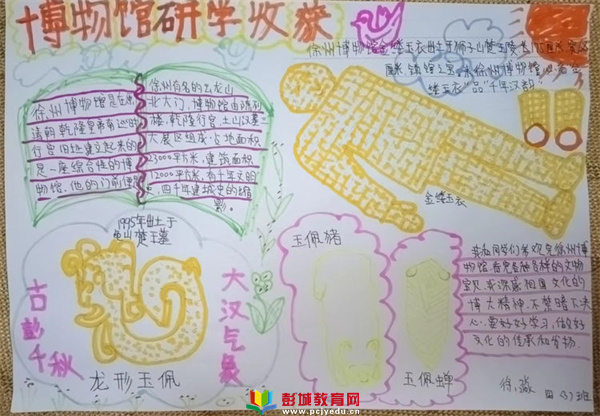 博物馆研学收获
徐州博物馆是在原
清朝乾隆皇帝南巡时
行宫旧址建设起来的
是一座综合性的博
物馆,他的门前便是
徐州有名的云龙山
北大门,博物馆由陈列
楼,乾隆行宫,土山汉墓三
大展区组成,占地面积
33000平方米,建筑面积
12000平方米,有千年文明
,四千年建城史的缩
影。
徐州博物馆金缕玉衣出土于狮子山楚王陵
徐州博物馆
缕玉衣"品"千年汉韵"
金缕玉衣
1995年出土于
龟山楚王墓
古彭千秋
龙形玉佩
大汉气象
玉佩猪
玉佩蝉
我和同学们参观完徐州博
物馆,看完各种各样的文物
宝贝,我深感祖国文化的
博大精神,不禁暗下决
心,要好好学习,做好
文化的传承和发扬
徐淼
四(3)班
彭城教育网
www.pcjyedu.cn